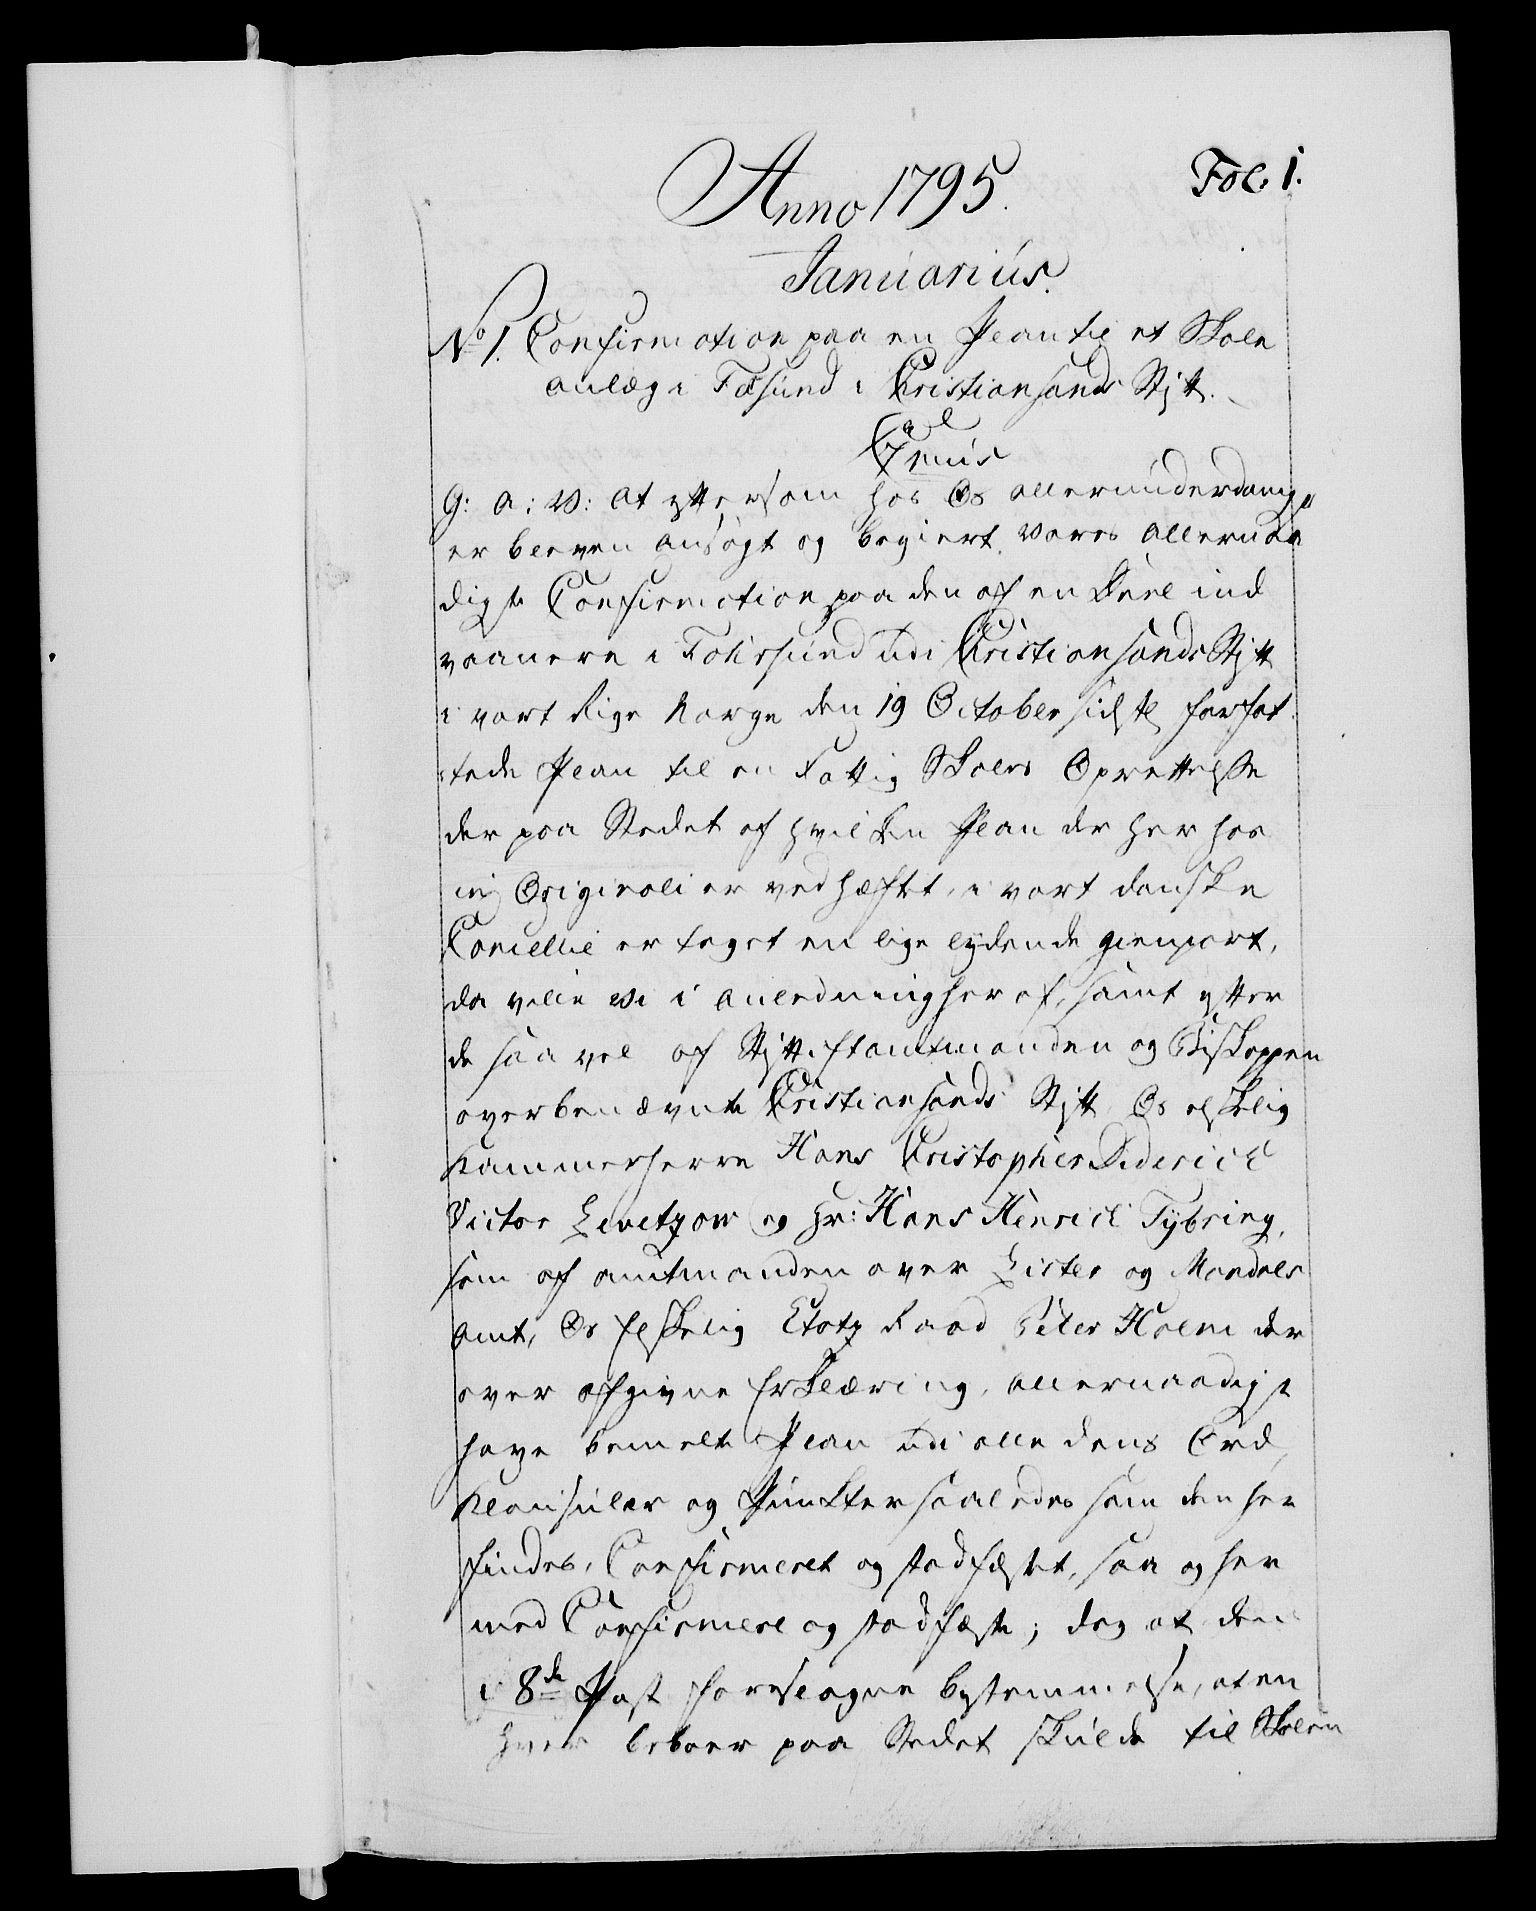 Anno 1795.
Fol. 1.
Januarius.
No 1. Confirmation paa en Plan til et Skole
anlæg i Farsund i Christiansands Stift.
C 7mus
G: A: V: At eftersom hos Os allerunderdanigst
er bleven ansøgt og begiert Vores allernaa
digste Confirmation paa den af en Deel ind
vaanere i Fahrsund udi Christiansands Stift
i vort Rige Norge den 19 October sidstl forfat
tede Plan til en Fattig Skoles Oprettelse
der paa Stedet af hvilken Plan der her hos
in Originali er vedhæftet, i vort danske
Cancellie er taget en lige lydende Gienpart,
da ville Vi i anledning heraf, samt efter
de saa vel af Stiftamtmanden og Biskoppen
over benævnte Christiansands Stift, Os elskelig
Kammerherre Hans Christopher Diderich
Victor Levetzow og Hr: Hans Henrich Tybring,
som af amtmanden over Lister og Mandals
Amt, Os Elskelig Etatz Raad Peter Holm der
over afgivne Erklæring, allernaadigst
have bemelte Plan udi alle dens Ord,
Klausuler og Punkter saaledes som den her
findes, Confirmeret og stadfæstet, saa og her
med Confirmere og stadfæste; dog at den
i 8de Post foreslagne bestemmelse, at en
hver beboer paa Stedet skulde til Skolen